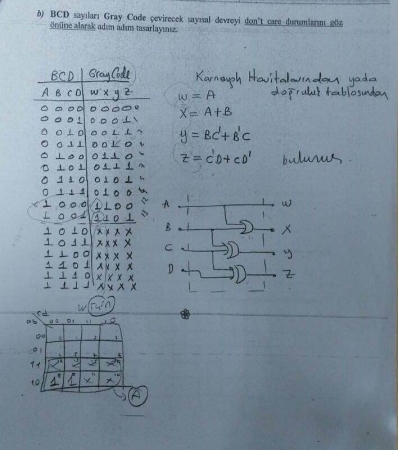 b) BCD sayıları Gray Code çevirecek sayısal devreyi don't care durumlarını göz
önüne alarak adım adım tasarlayınız.
BCD Gray Code
A B C D w x y z
0 0 0 0 0 0 0 0
0 0 0 1 0 0 0 1
0 0 1 0 0 0 1 1
0 0 1 1 0 0 1 0
0 1 0 0 0 1 1 0
0 1 0 1 0 1 1 1
0 1 1 0 0 1 0 1
0 1 1 1 0 1 0 0
1 0 0 0 1 1 0 0
1 0 0 1 1 1 0 1
1 0 1 0 x x x x
1 0 1 1 x x x x
1 1 0 0 x x x x
1 1 0 1 x x x x
1 1 1 0 x x x x
1 1 1 1 x x x x
Karnaugh Haritalarından yada
doğruluk tablosundan
w = A
X = A+B
y = BC'+B'C
z = C'D+CD' bulunur.
A w
B X
C y
D z
w
00 01 11 10
00
01
11 x x x x
10 1 1 x x
A